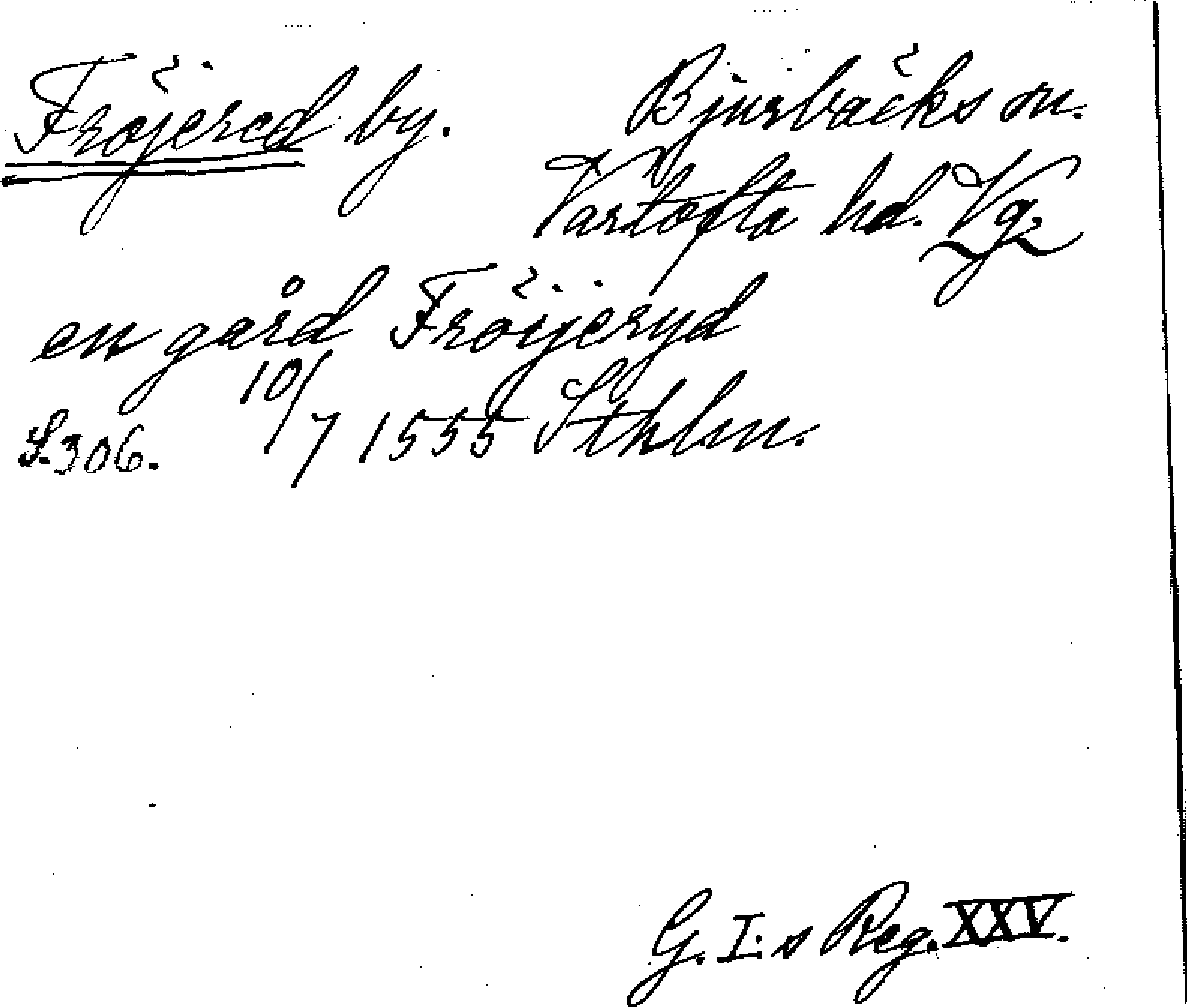 Fröjered by. Bjurbäcks sn.
Vartofta hd. Vg.
en gård Fröijeryd
S. 306. 10/7 1555 Sthlm.
G. I:s Reg. XXV.